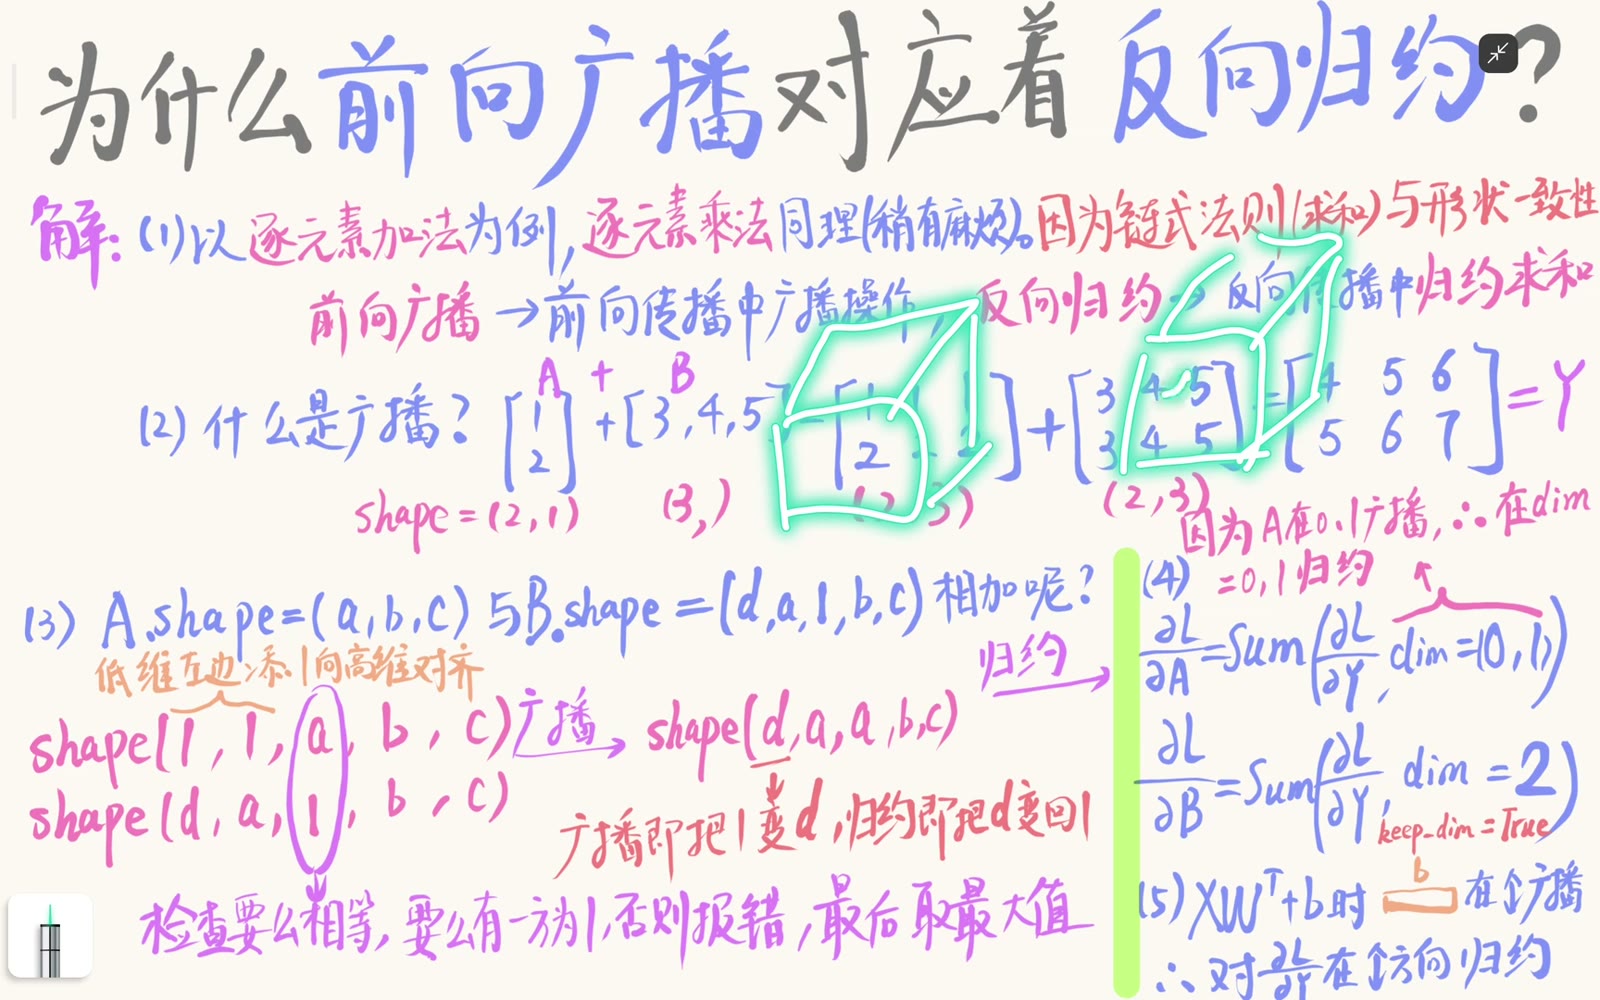 为什么前向广播对应着反向归约?
解: (1)以逐元素加法为例,逐元素乘法同理(稍有麻烦)。因为链式法则(求和)与形状一致性
前向广播→前向传播中广播操作, 反向归约→反向传播中归约求和
A + B
(2) 什么是广播? [1 2] + [3,4,5] = [1 1 1 2 2 2] + [3 4 5 3 4 5] = [4 5 6 5 6 7] = Y
shape=(2,1) (3,) (2,3) (2,3)
(3) A.shape=(a,b,c) 与B.shape=(d,a,1,b,c)相加呢?
低维左边添1向高维对齐
shape(1, 1, a, b, c) 广播→ shape(d,a,a,b,c)
shape(d, a, 1, b, c)
广播即把1变d,归约即把d变回1
检查要么相等,要么有一方为1,否则报错,最后取最大值
归约→
因为A在0、1广播,∴在dim
=0,1归约
(4)
∂L/∂A=Sum(∂L/∂Y, dim=(0,1))
∂L/∂B=Sum(∂L/∂Y, dim=2)
keep-dim=True
b
(5) XWᵀ+b时 在个广播
∴对∂L/∂Y在个方向归约